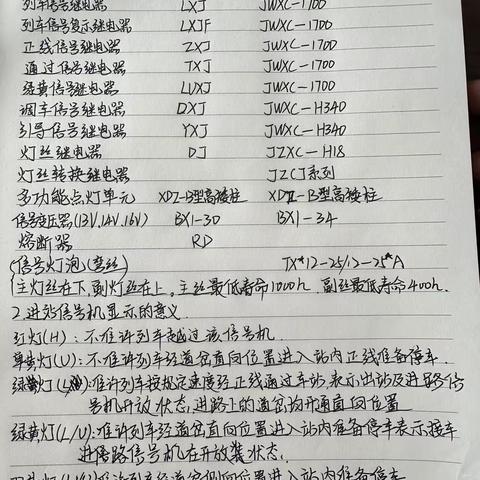 列车信号继电器 LXJ JWXC-1700
列车信号复示继电器 LXJF JWXC-1700
正线信号继电器 ZXJ JWXC-1700
通过信号继电器 TXJ JWXC-1700
绿黄信号继电器 LUXJ JWXC-1700
调车信号继电器 DXJ JWXC-H340
引导信号继电器 YXJ JWXC-H340
灯丝继电器 DJ JZXC-H18
灯丝转换继电器 JZCJ系列
多功能点灯单元 XDZ-B型高矮柱 XDZ-B型高矮柱
信号变压器(13V,14V,16V) BX1-30 BX1-34
熔断器 RD
(信号灯泡(弯丝) TX*12-25/12-25*A
(主灯丝在下,副灯丝在上,主丝最低寿命1000h.副丝最低寿命400h.
2.进站信号机显示的意义.
红灯(H):不准许列车越过该信号机
单黄灯(U):不准许列车经道岔直向位置进入站内正线准备停车.
绿灯(L):准许列车按规定速度经正线通过车站,表示出站及进路信
号机开放状态,进路上的道岔均开通直向位置
绿黄灯(L/U):准许列车经道岔直向位置进入站内准备停车表示接车
进路信号机在开放状态.
列车经道岔侧向位置进入站内准备停车